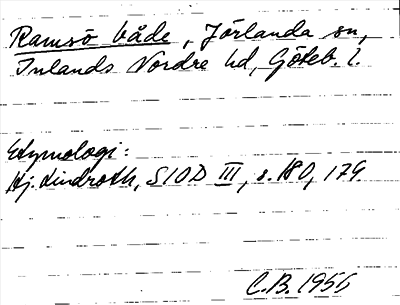 Ramsö både, Jörlanda sn,
Inlands Nordre hd, Göteb. l.
Etymologi:
Hj. Lindroth, SIOD III, s. 180, 179
C.B. 1956